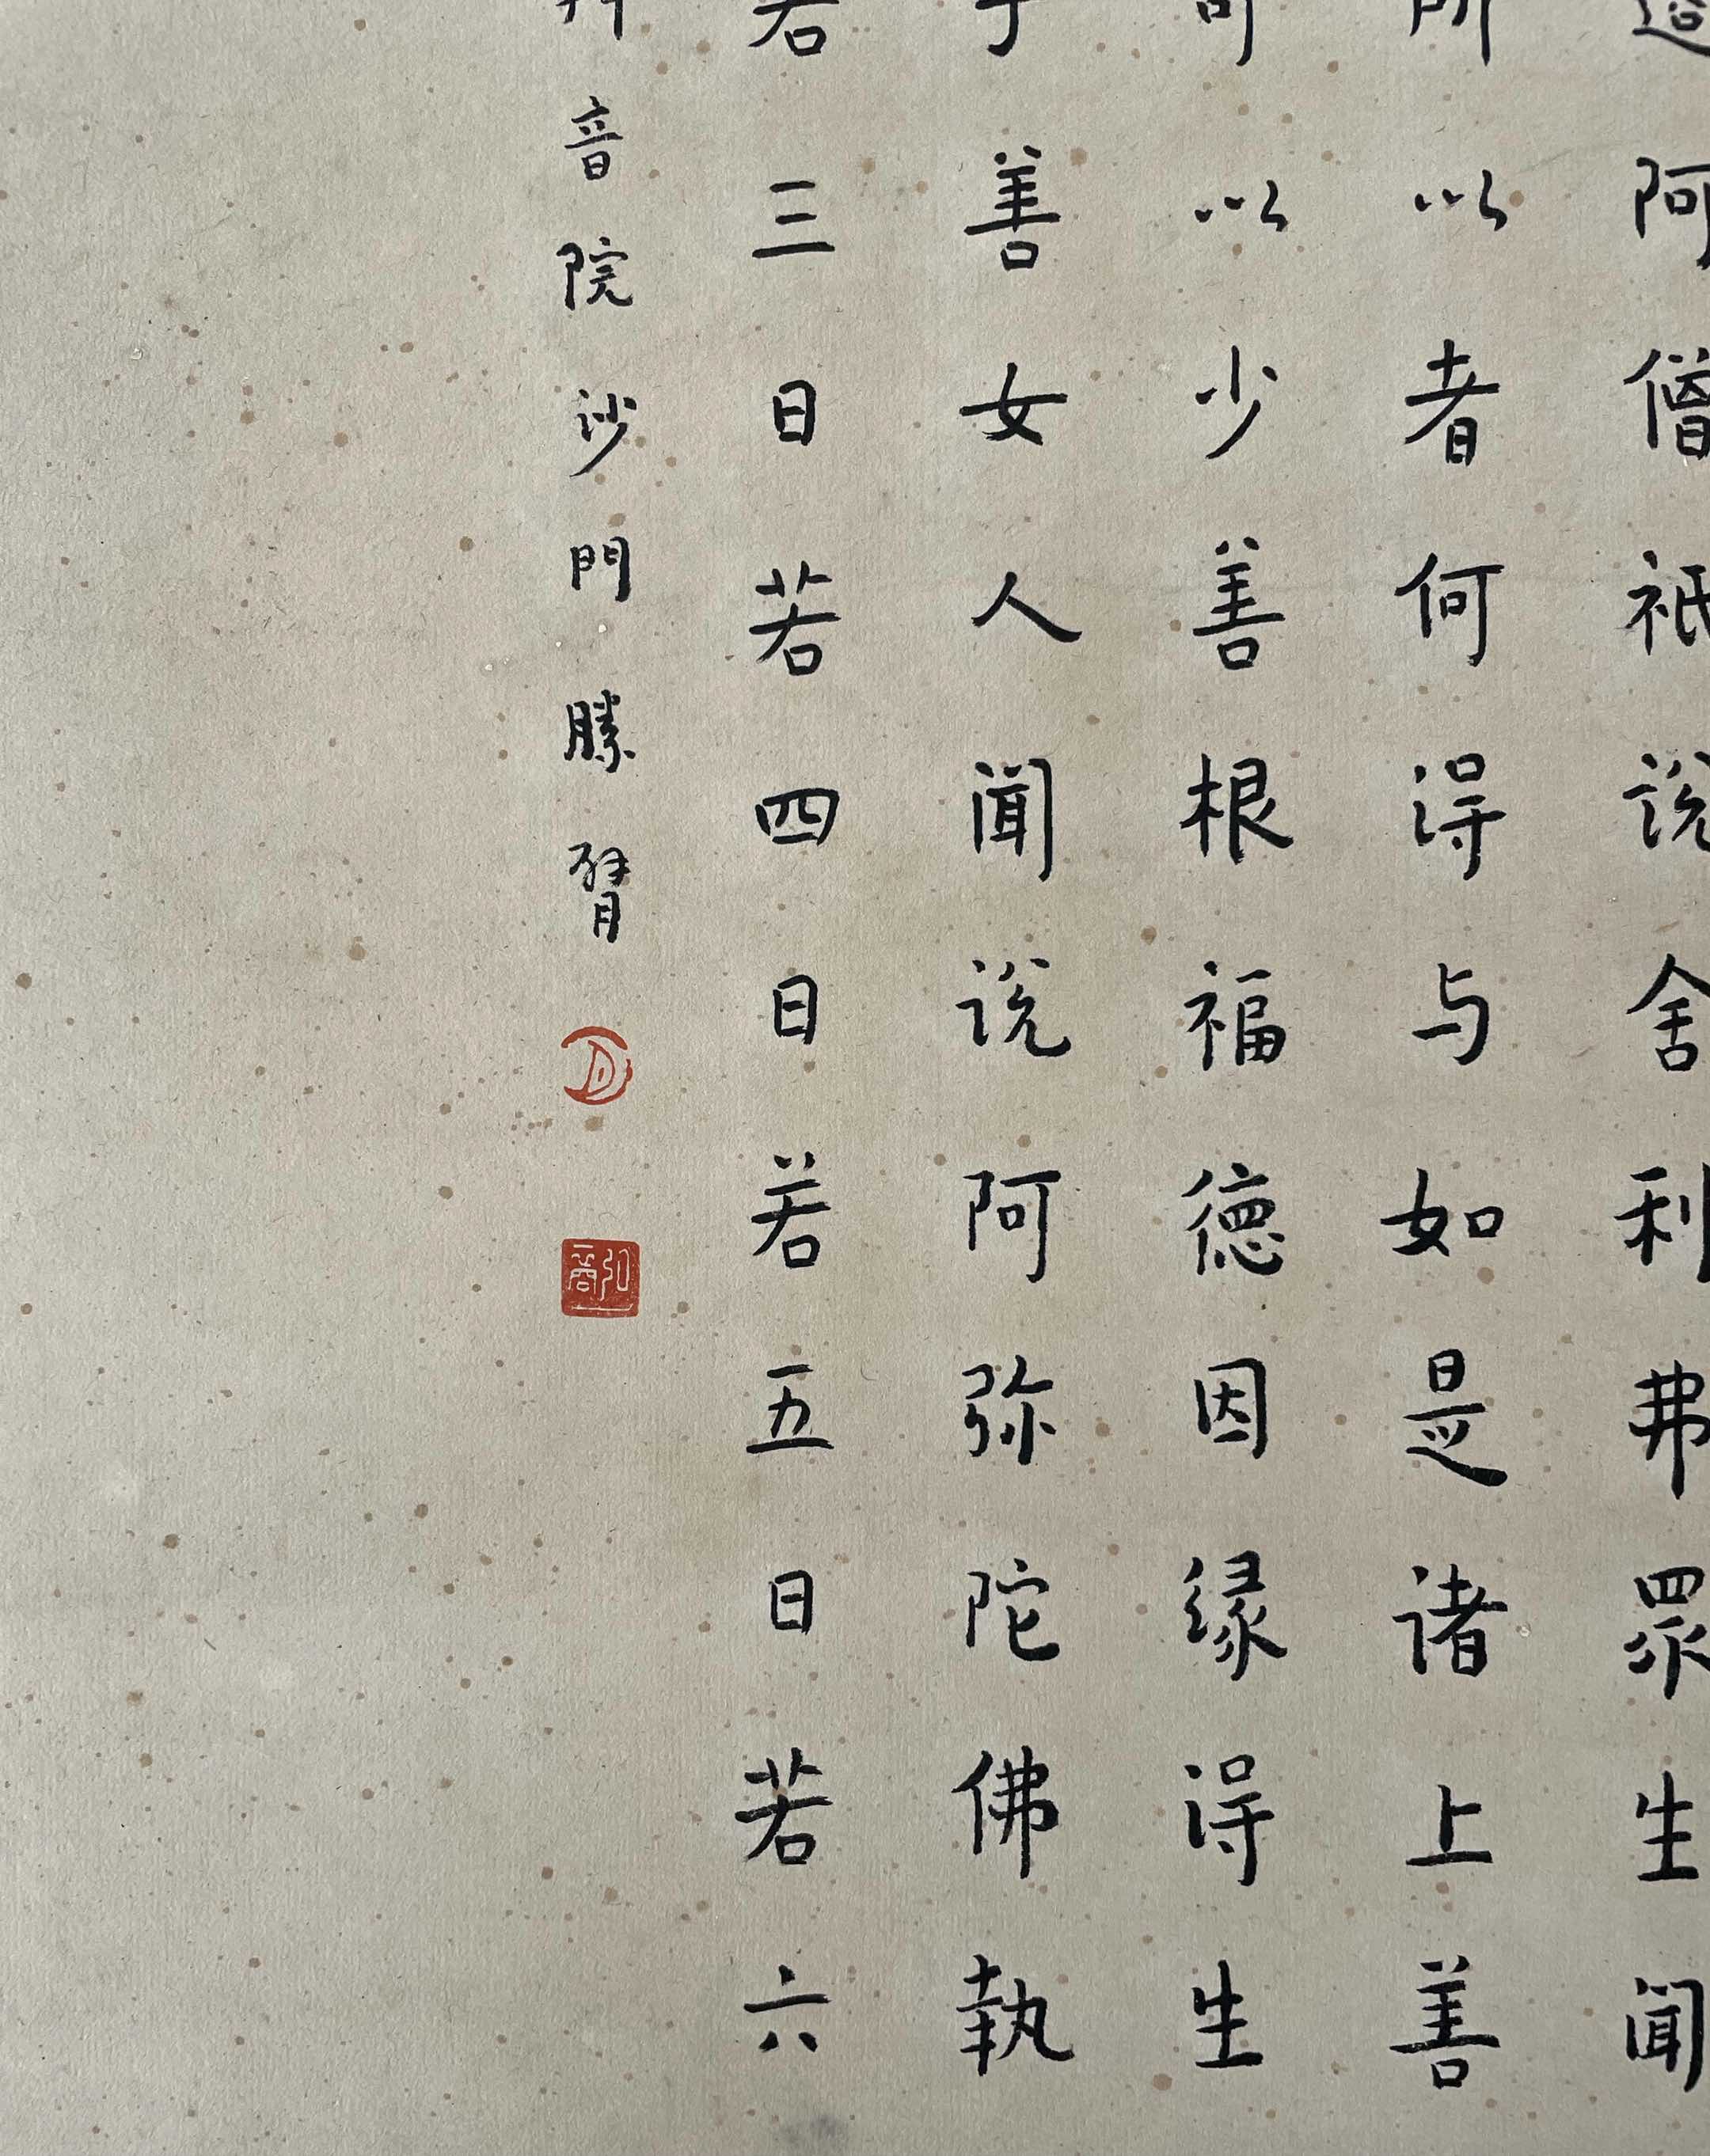 阿僧祇说舍利弗眾生闻
所以者何得与如是诸上善
可以少善根福德因缘得生
善女人闻说阿弥陀佛執
若三日若四日若五日若六
音院沙門勝臂
弘裔